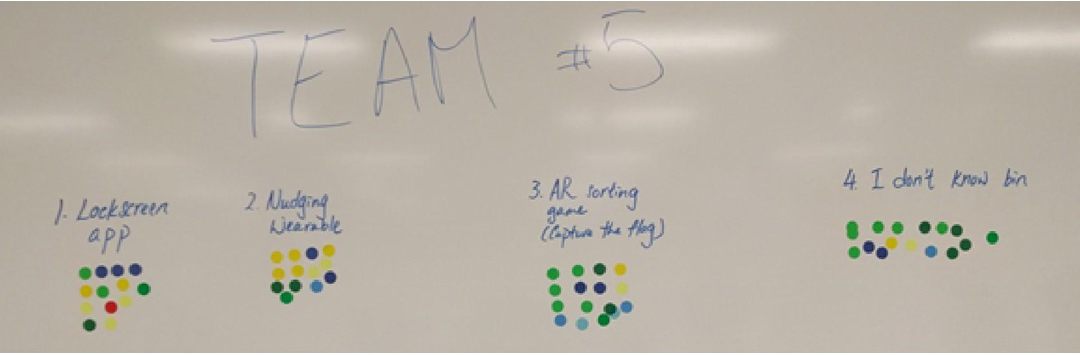 TEAM #5
1. Lockscreen
app
2. Nudging
Wearable
3. AR sorting
game
(Capture the flag)
4. I don't know bin